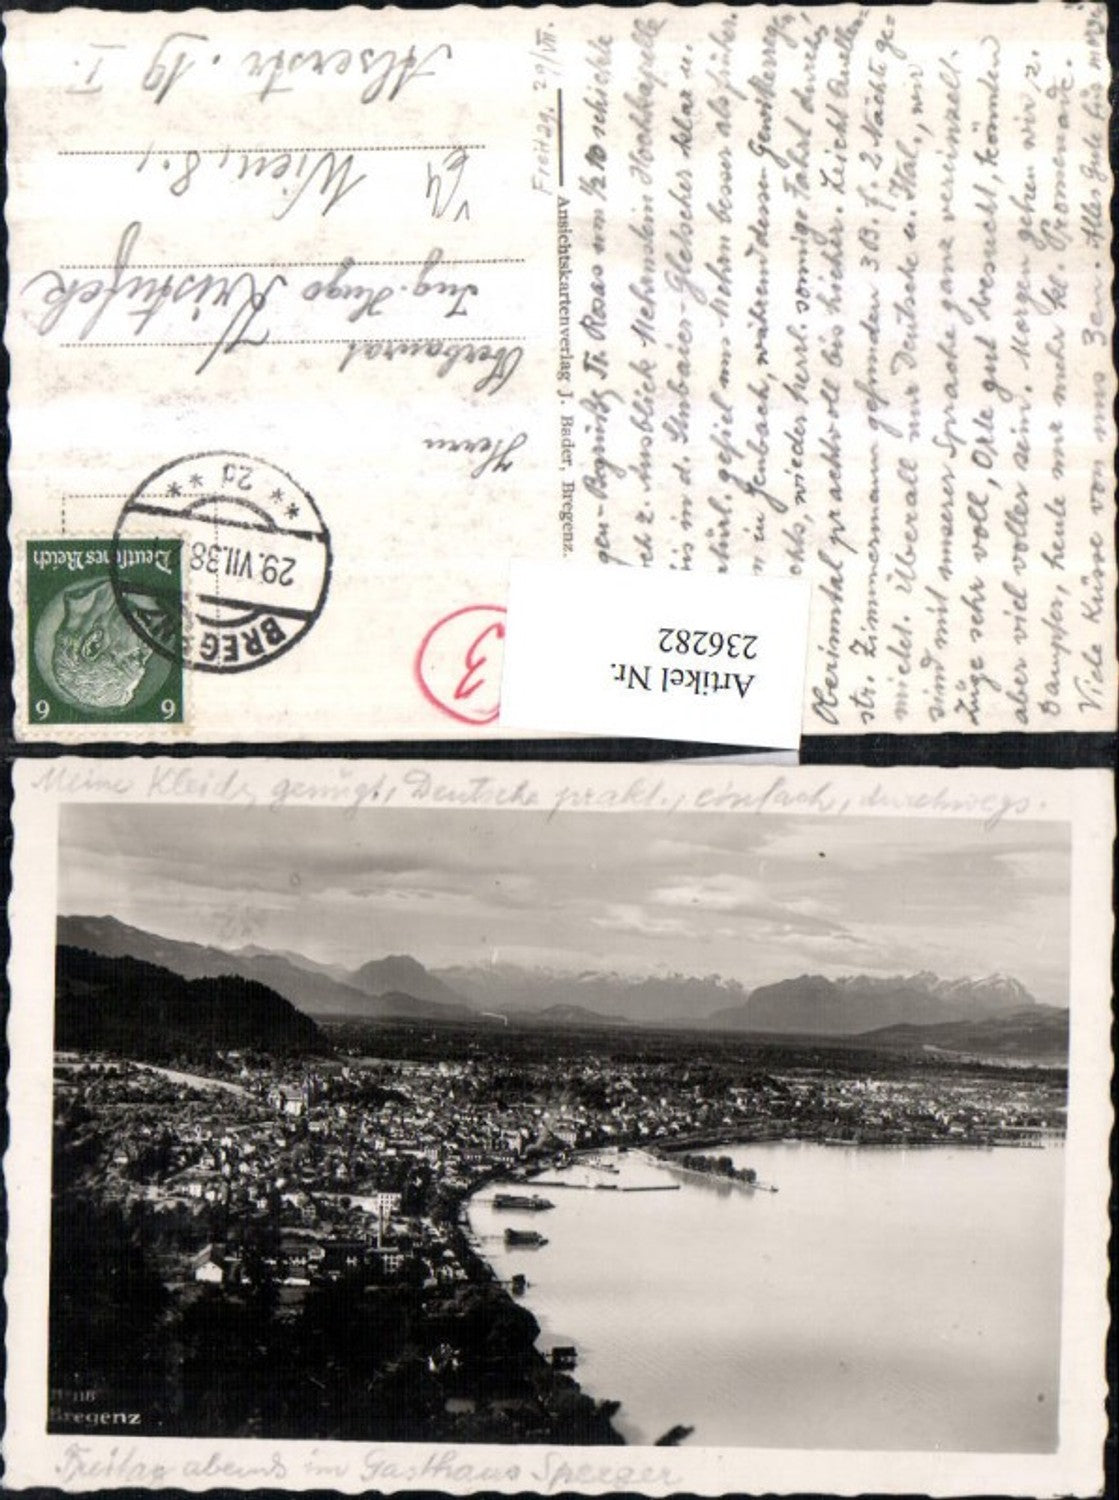 Freitag, 29/VII.
gen-Regnitz, Tr. Rosas um 1/2 10 schickte
Ausblick Hochkapelle
u. d. Stubaier-Gletscher klar u.
gefiel uns besser als früher.
in Jenbach, während dessen Gewitterregen,
wieder herrl. sonnige Fahrt durchs
Oberinntal prachtvoll bis hieher. Leicht Quellen-
str. Zimmermann gefunden 3 B. f. 2 Nächte ge-
mietet. Überall nur Deutsche u. Ital., wir
sind mit unserer Sprache ganz vereinzelt.
Züge sehr voll, Orte gut besucht, könnten
aber viel voller sein. Morgen gehen wir z.
Dampfer, heute nur mehr kl. Promenade.
Viele Küsse von uns 3en. Alles Gute
Ansichtskartenverlag J. Bader, Bregenz.
Herrn
Oberbaurat
Ing. Hugo Kristufek
Wien, 8.,
Alserstr. 19
I.
Deutsches Reich
6 6
BREGENZ
29.VII.38
** 2d **
3
Artikel Nr.
236282
Meine Kleidg genügt, Deutsche prakt., einfach, durchwegs.
118
Bregenz
Freitag abends im Gasthaus Sperger